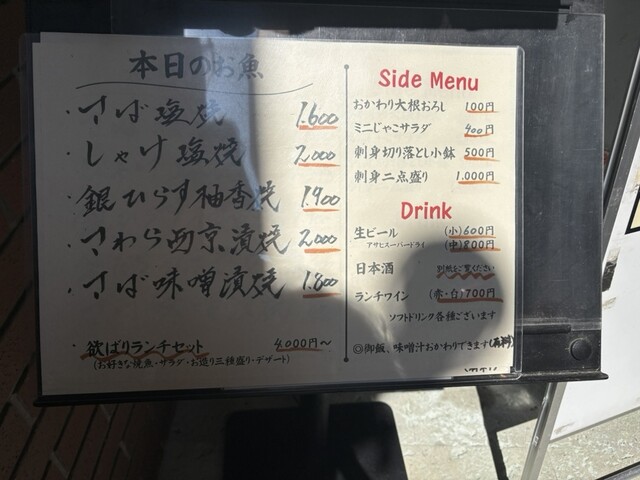 本日のお魚
・さば塩焼 1.600
・しゃけ塩焼 2.000
・銀ひらす柚香焼 1.900
・さわら西京漬焼 2.000
・さば味噌漬焼 1.800
・欲ばりランチセット 4.000円～
(お好きな焼魚・サラダ・お造り三種盛り・デザート)
Side Menu
おかわり大根おろし 100円
ミニじゃこサラダ 400円
刺身切り落とし小鉢 500円
刺身二点盛り 1.000円
Drink
生ビール (小)600円
アサヒスーパードライ (中)800円
日本酒 別紙をご覧ください
ランチワイン (赤・白)700円
ソフトドリンク各種ございます
◎御飯、味噌汁おかわりできます(有料)